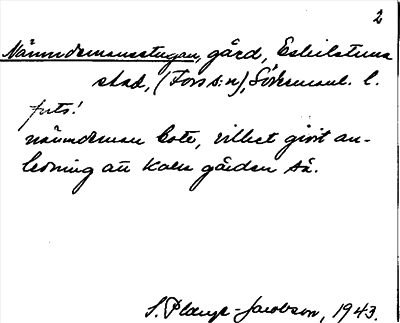 2
Nämndemansstugan, gård, Eskilstuna
stad, (Fors s:n), Södermanl. l.
forts!
nämndeman bote, vilket givit an-
ledning att kalla gården så.
S. Plange-Jacobson, 1943.